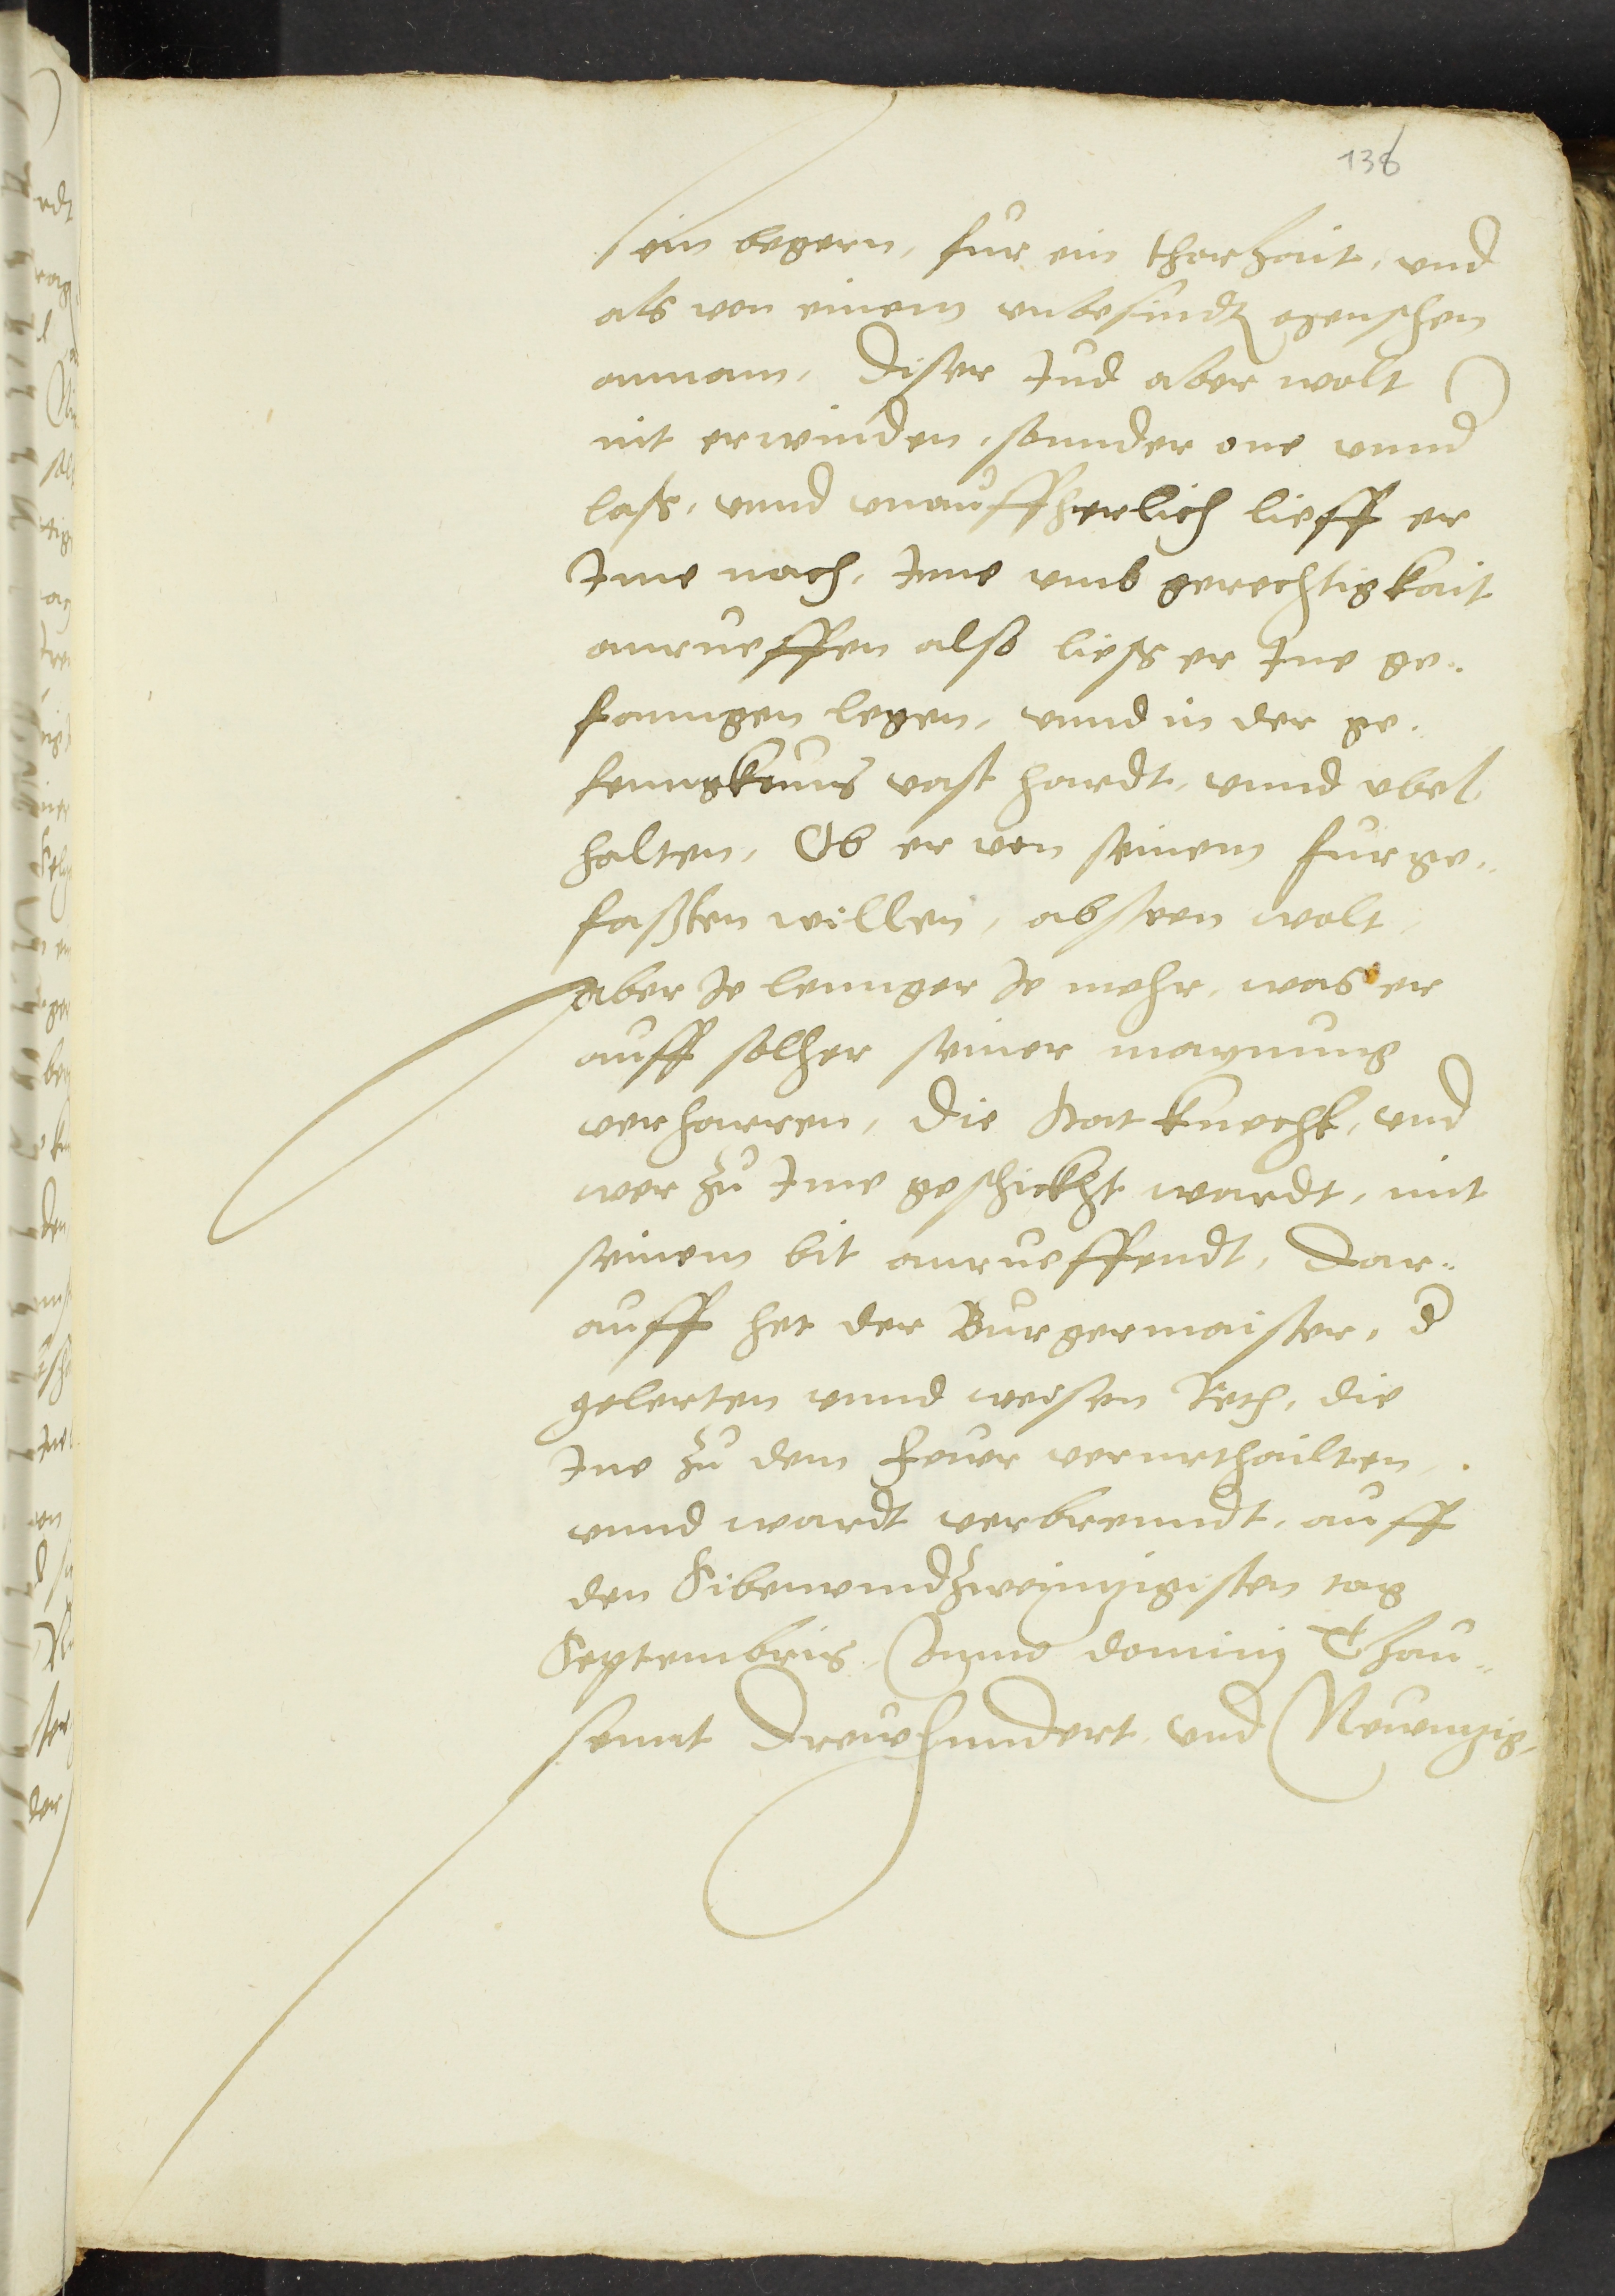 138
sein begern, fur ein thorhait, und
als von einem unbesindtn menschen
annam, Diser Jud aber wolt
nit erwinden, sonnder one unnd
lass, unnd unauffherlich lieff er
Jme nach, Jme umb gerechtigkait
anrueffen also liess er Jne ge„
fanngen legen, unnd in der ge„
fenngknus vast hardt, unnd ubel
halten, Ob er von seinem furge„
fassten willen, absteen wolt,
Aber Je lennger Je mehr, was er
auff solher seiner maynung
verharren, Die Stat knecht, und
wer zu Jme geschickht wardt, mit
seinem bit anrueffendt, Dar„
auff het der Burgermaister, d
gelerten unnd weisen Reth, die
Jne zu dem Feuer verurthailten,
unnd wardt verbrenndt, auff
den Sibenundzweintzigisten tag
Septembris, Anno dominj Thau„
sennt Dreuhundert und Neuntzig,